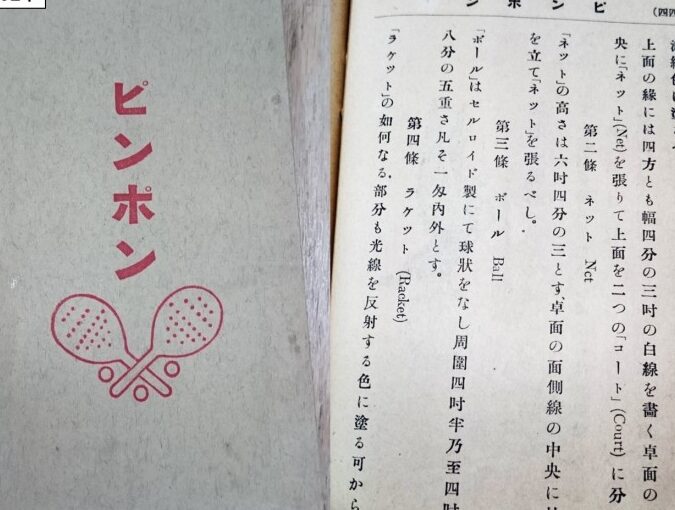 ピンポン
ピンポン
上面の緣には四方とも幅四分の三吋の白線を畫く卓面の
央に「ネット」(Net)を張りて上面を二つの「コート」(Court)に分
第二條 ネット Net
「ネット」の高さは六吋四分の三とす、卓面の面側線の中央に
を立て「ネット」を張るべし。
第三條 ボール Ball
「ボール」はセルロイド製にて球狀をなし周圍四吋半乃至四吋
八分の五重さ凡そ一匁內外とす。
第四條 ラケット (Racket)
「ラケット」の如何なる部分も光線を反射する色に塗る可から